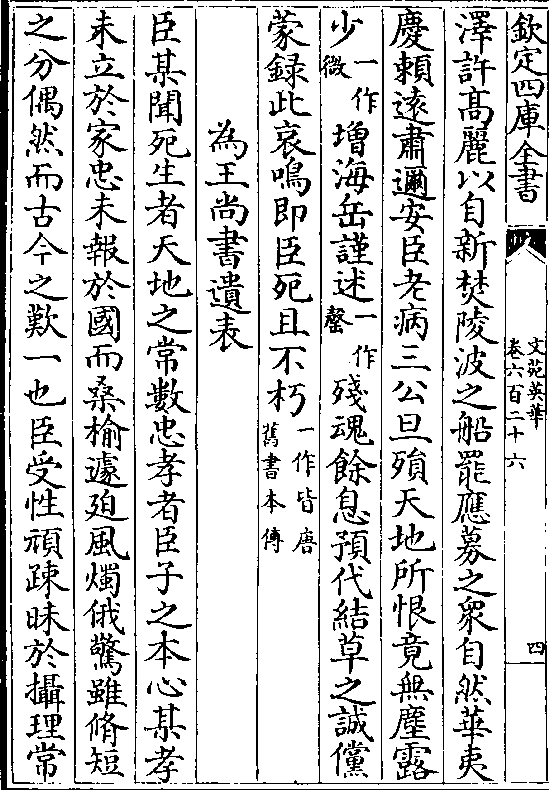 欽定四庫全書
文苑英華
卷六百二十六
四
澤許髙麗以自新焚陵波之船罷應募之衆自然華夷
慶頼逺肅邇安臣老病三公旦殞天地所恨竟無塵露
少一作微増海岳謹述一作罄殘魂餘息預代結草之誠儻
蒙録此哀鳴即臣死且不朽一作皆唐舊書本傳
為王尚書遺表
臣某聞死生者天地之常數忠孝者臣子之本心某孝
未立於家忠未報於國而桑榆遽廹風燭俄驚雖脩短
之分偶然而古今之歎一也臣受性頑疎昧於攝理常